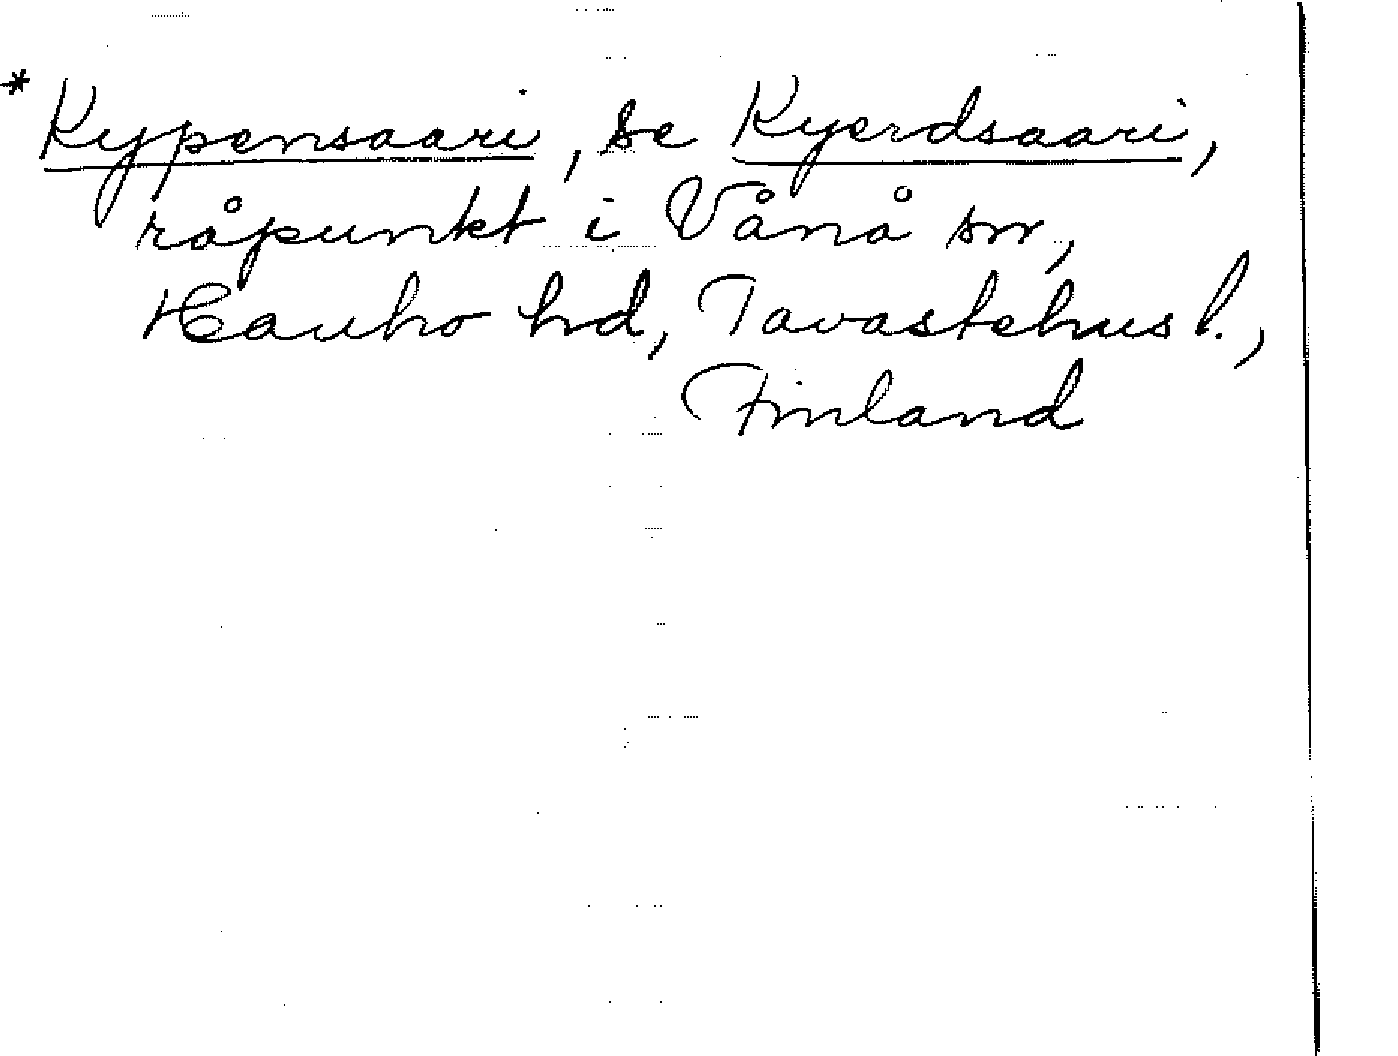 * Kypensaari, se Kyerdsaari,
råpunkt i Vånå sn,
Hauho hd, Tavastehus l.,
Finland